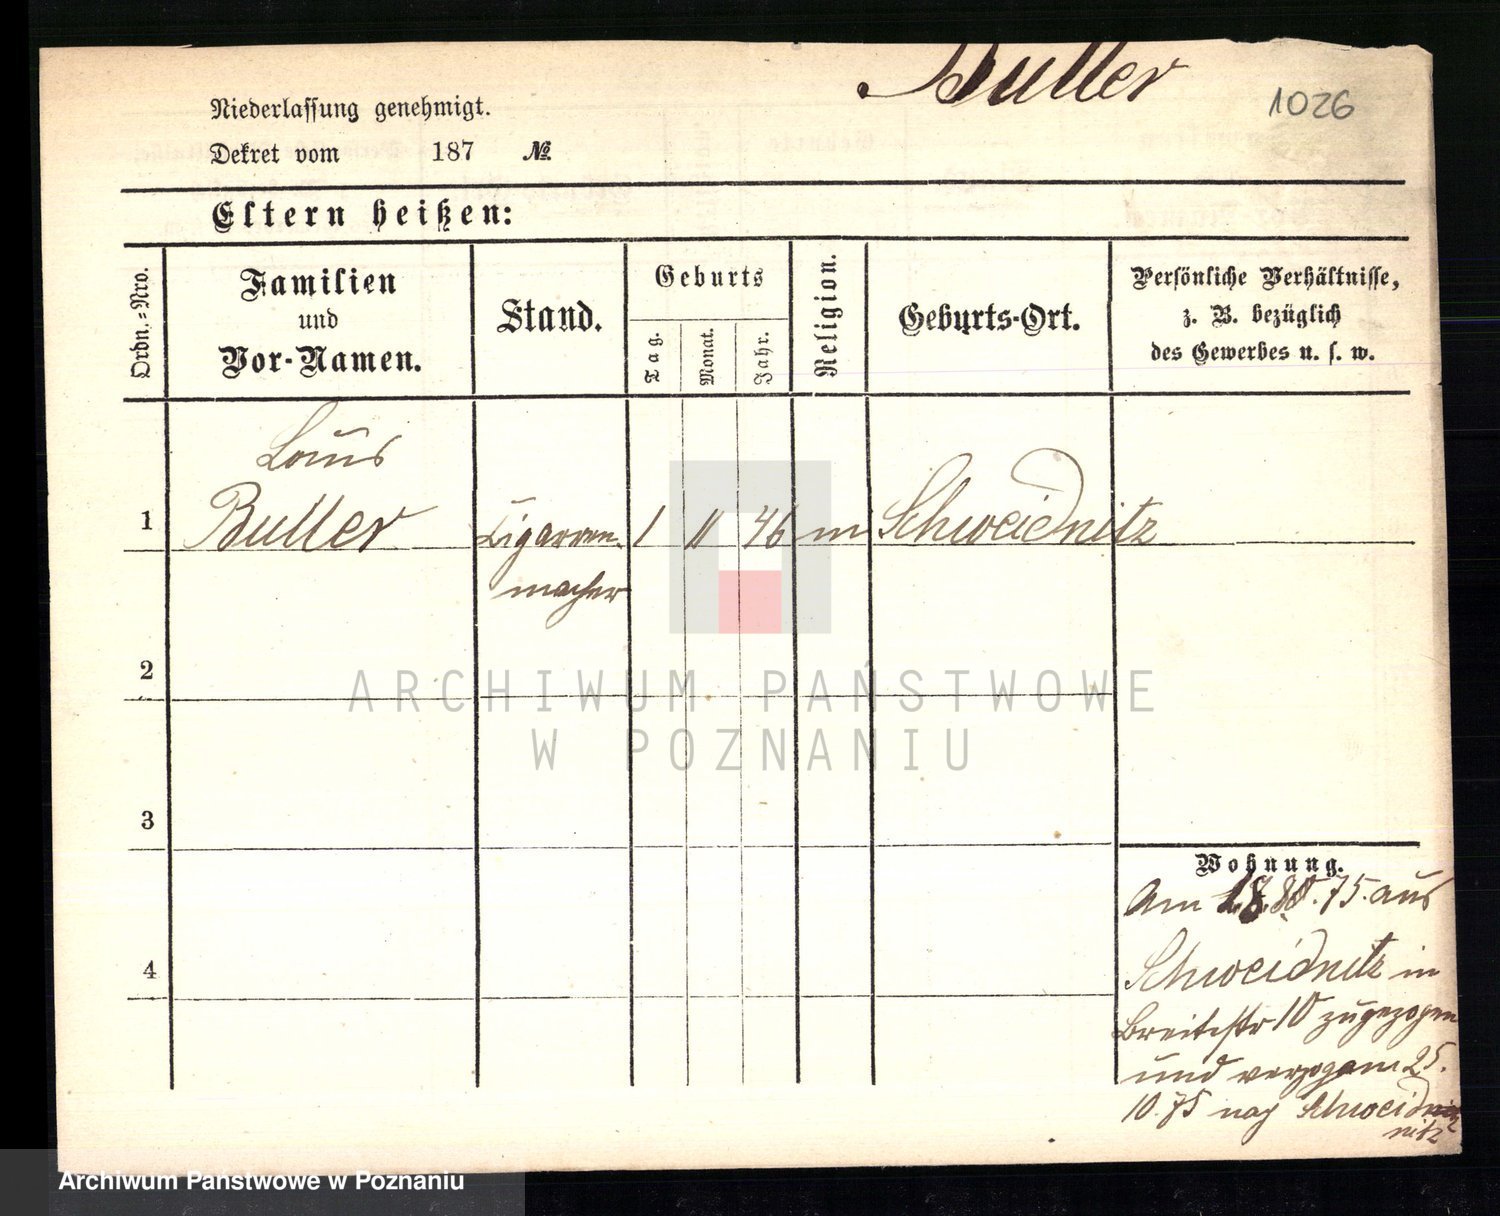 Buller
1026
Niederlassung genehmigt.
Dekret vom 187 №
Eltern heißen:
Ordn.=Nro.
Familien
und
Vor-Namen.
Stand.
Geburts
Tag.
Monat.
Jahr.
Religion.
Geburts-Ort.
Persönliche Verhältnisse,
z. B. bezüglich
des Gewerbes u. s. w.
Louis
1 Buller Cigarren- 1 11 46 m Schweidnitz
macher
2
3
4
Wohnung.
Am 75. aus
Schweidnitz in
Breitestr 10 zugezogen
und verzogen 25.
10.75 nach Schweidnitz
nitz
ARCHIWUM PAŃSTWOWE
W POZNANIU
Archiwum Państwowe w Poznaniu